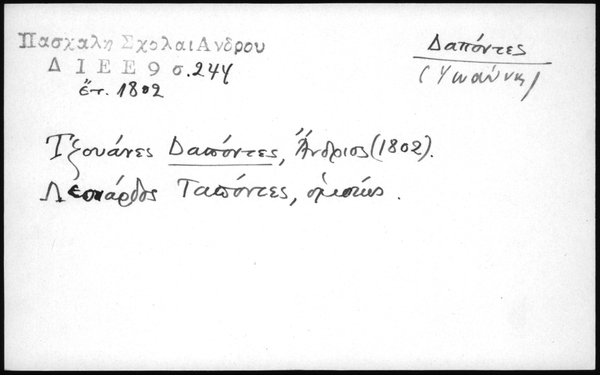 Πασχαλη Σχολαι Ανδρου
Δ Ι Ε Ε 9 σ. 244
ἔτ. 1802
Δαπόντες
(Ἰωάννης)
Τζουάνες Δαπόντες, Ἄνδριος (1802).
Λεονάρδος Ταπόντες, ὁμοίως.